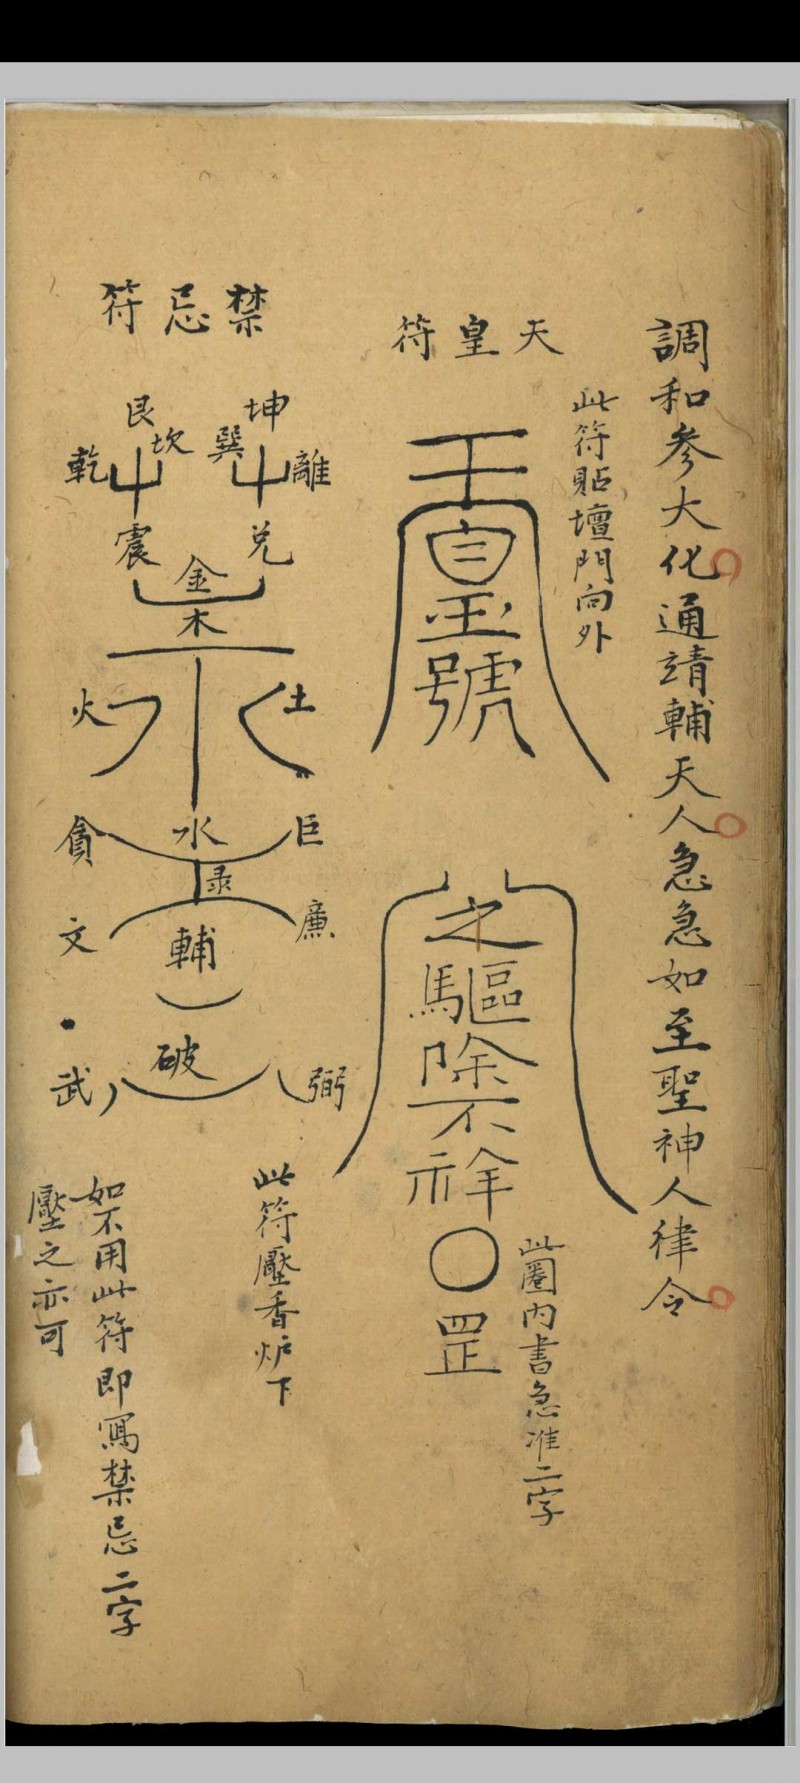 調和參大化通靖輔天人急急如至聖神人律令
天皇符
此符貼壇門向外
號
之驅除不祥
罡
此圈內書急准二字
禁忌符
坤
艮
離
巽
坎
乾
兌
震
金
木
土
火
巨
水
貪
录
廉
輔
文
破
弼
武
此符壓香炉下
如不用此符即寫禁忌二字
壓之亦可